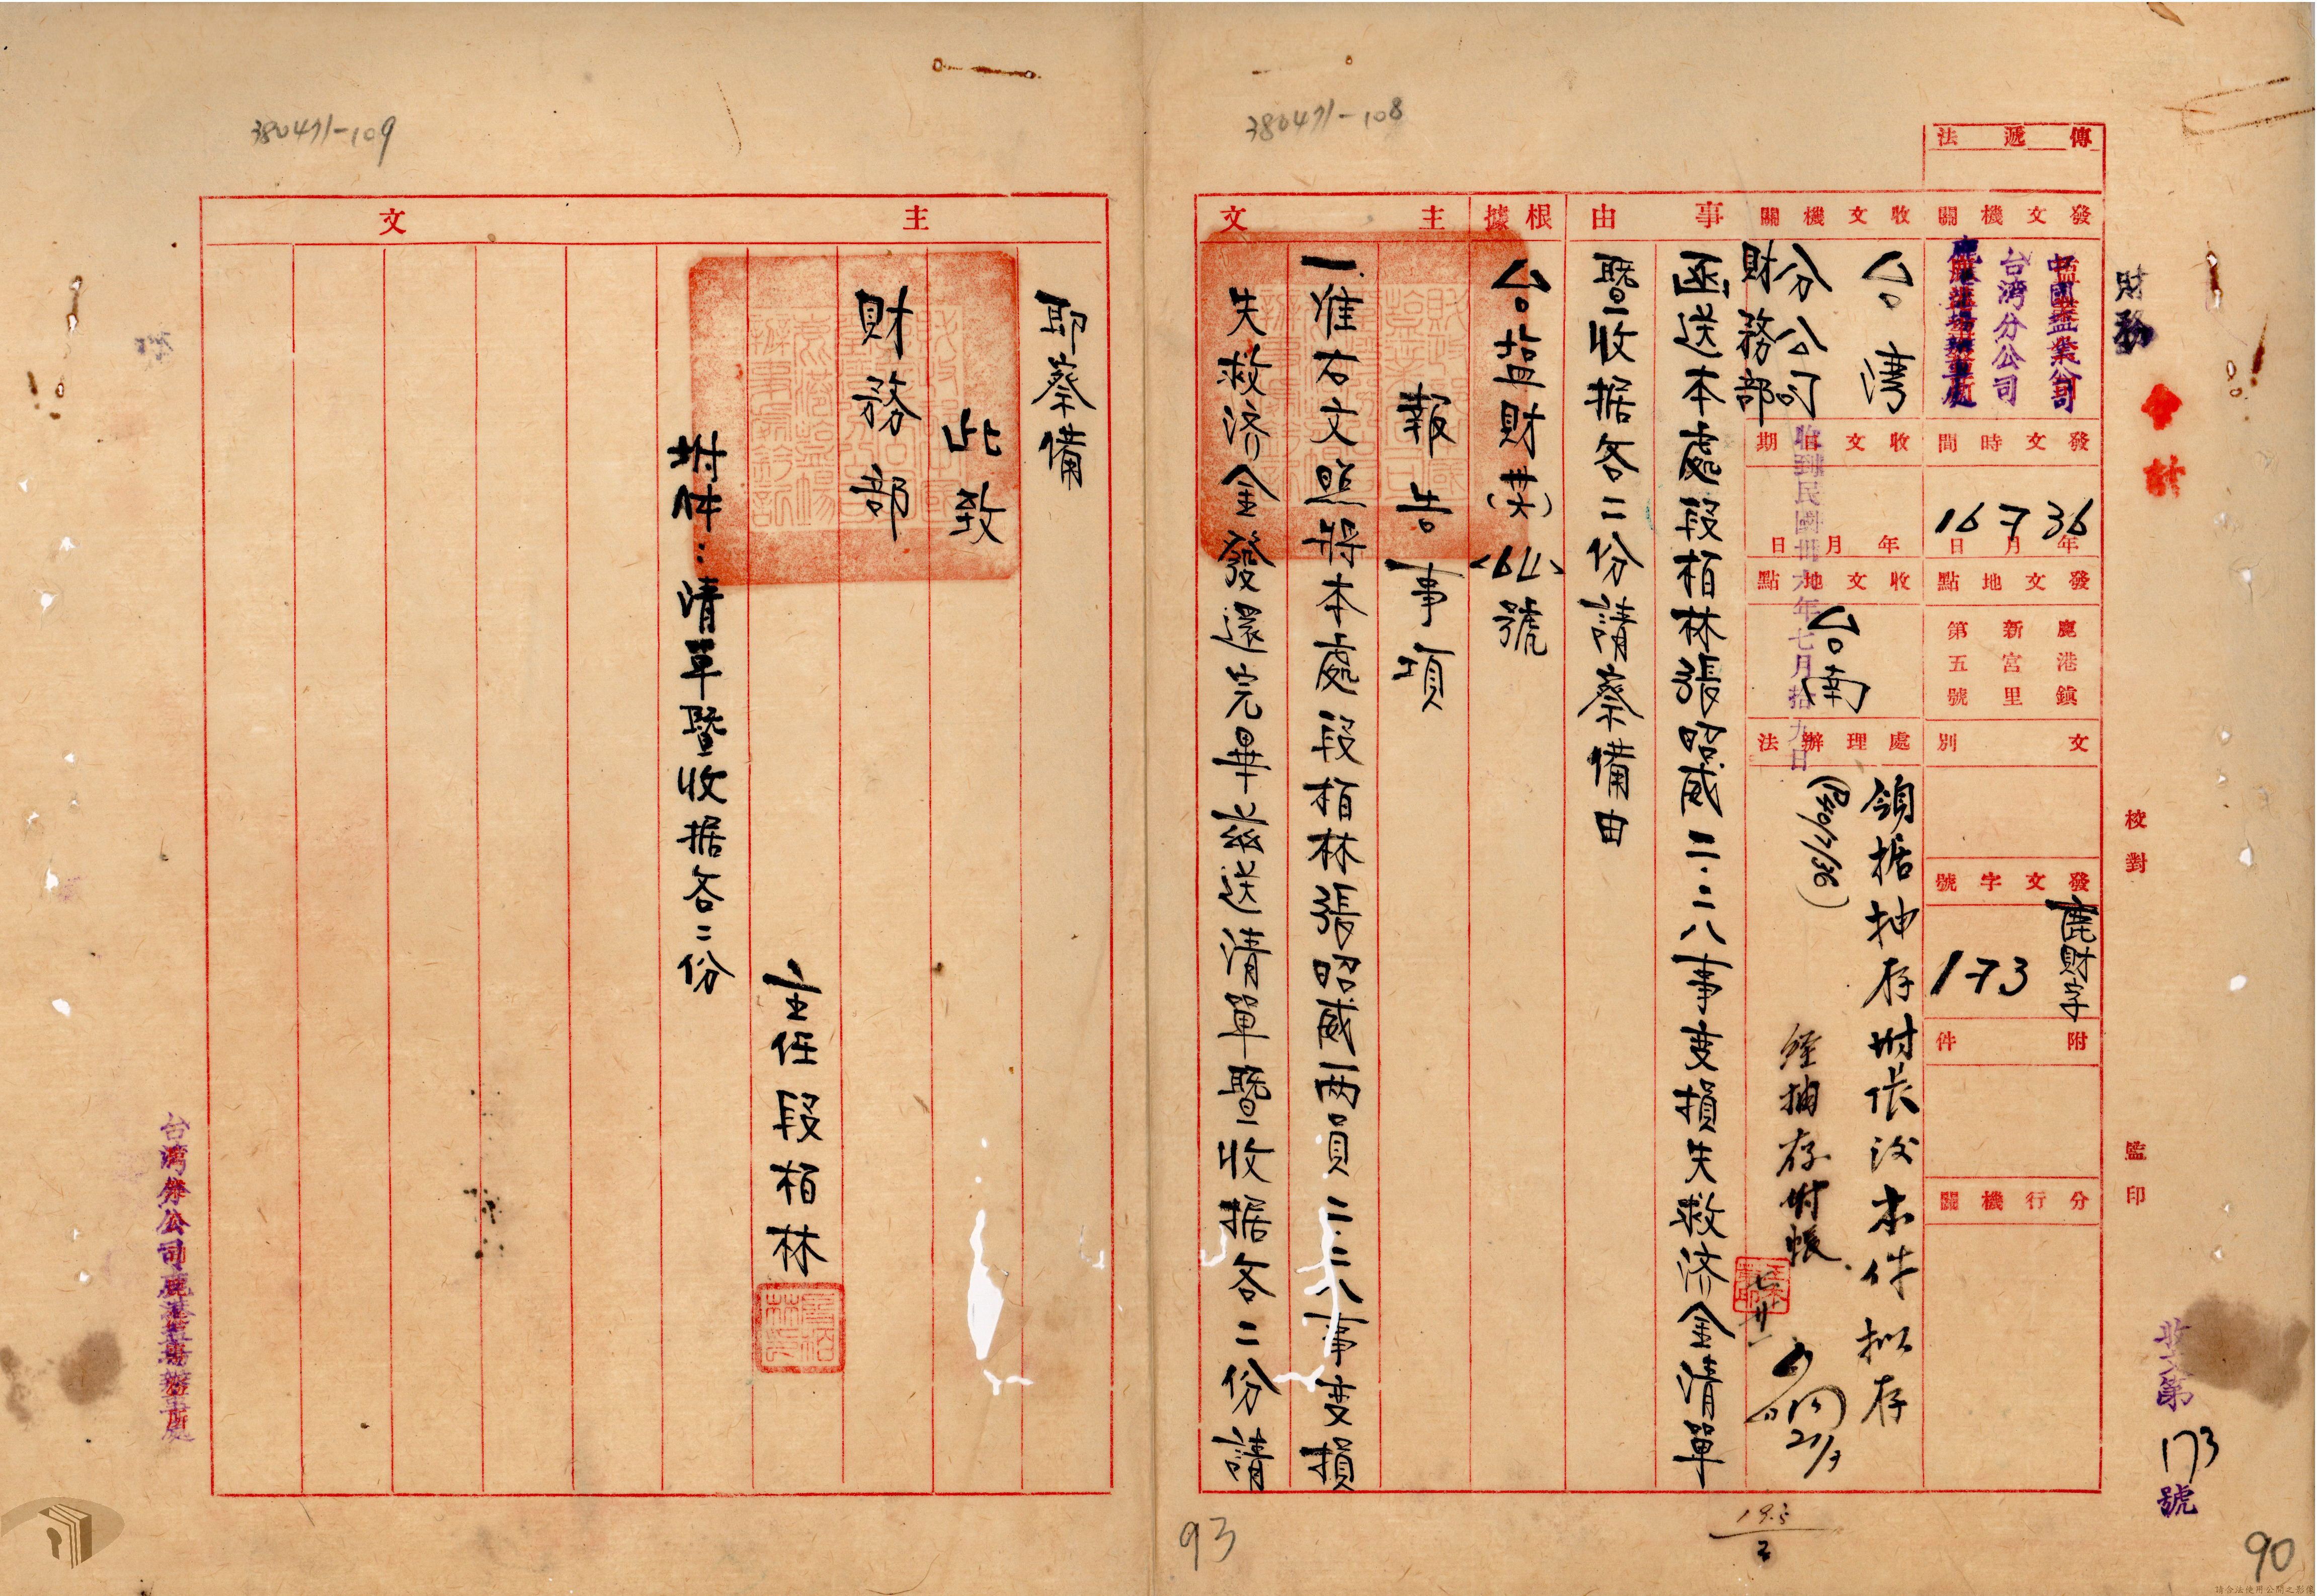 380471-108
傳遞法
財務
會計
校對
監印
收文第173號
發文機關
中國鹽業公司
台湾分公司
鹿港鹽場辦事處
發文時間
36年7月16日
發文地點
鹿港鎮
新宮里
第五號
文別
發文字號
鹿財字
173
附件
分行機關
收文機關
台湾
分公司
財務部
收文日期
年月日
收到民國卅六年七月拾九日
收文地點
台南
處理辦法
領据抽存坿帐後本件拟存
經抽存坿帳
七廿一
21/7
事由
函送本處段栢林張昭咸二.二八事变損失救济金清單
暨收据各二份請察備由
根據
台盐財
號
主文
報告事項
一.准右文照將本處段栢林張昭咸兩員二.二八事变損
失救济金發還完畢茲送清單暨收据各二份請
19.5
2
90
93
380471-109
主文
耶察備
此致
財務部
主任段栢林
坿件：清单暨收据各二份
台灣分公司鹿港鹽場辦事處
請合法使用公開之影像